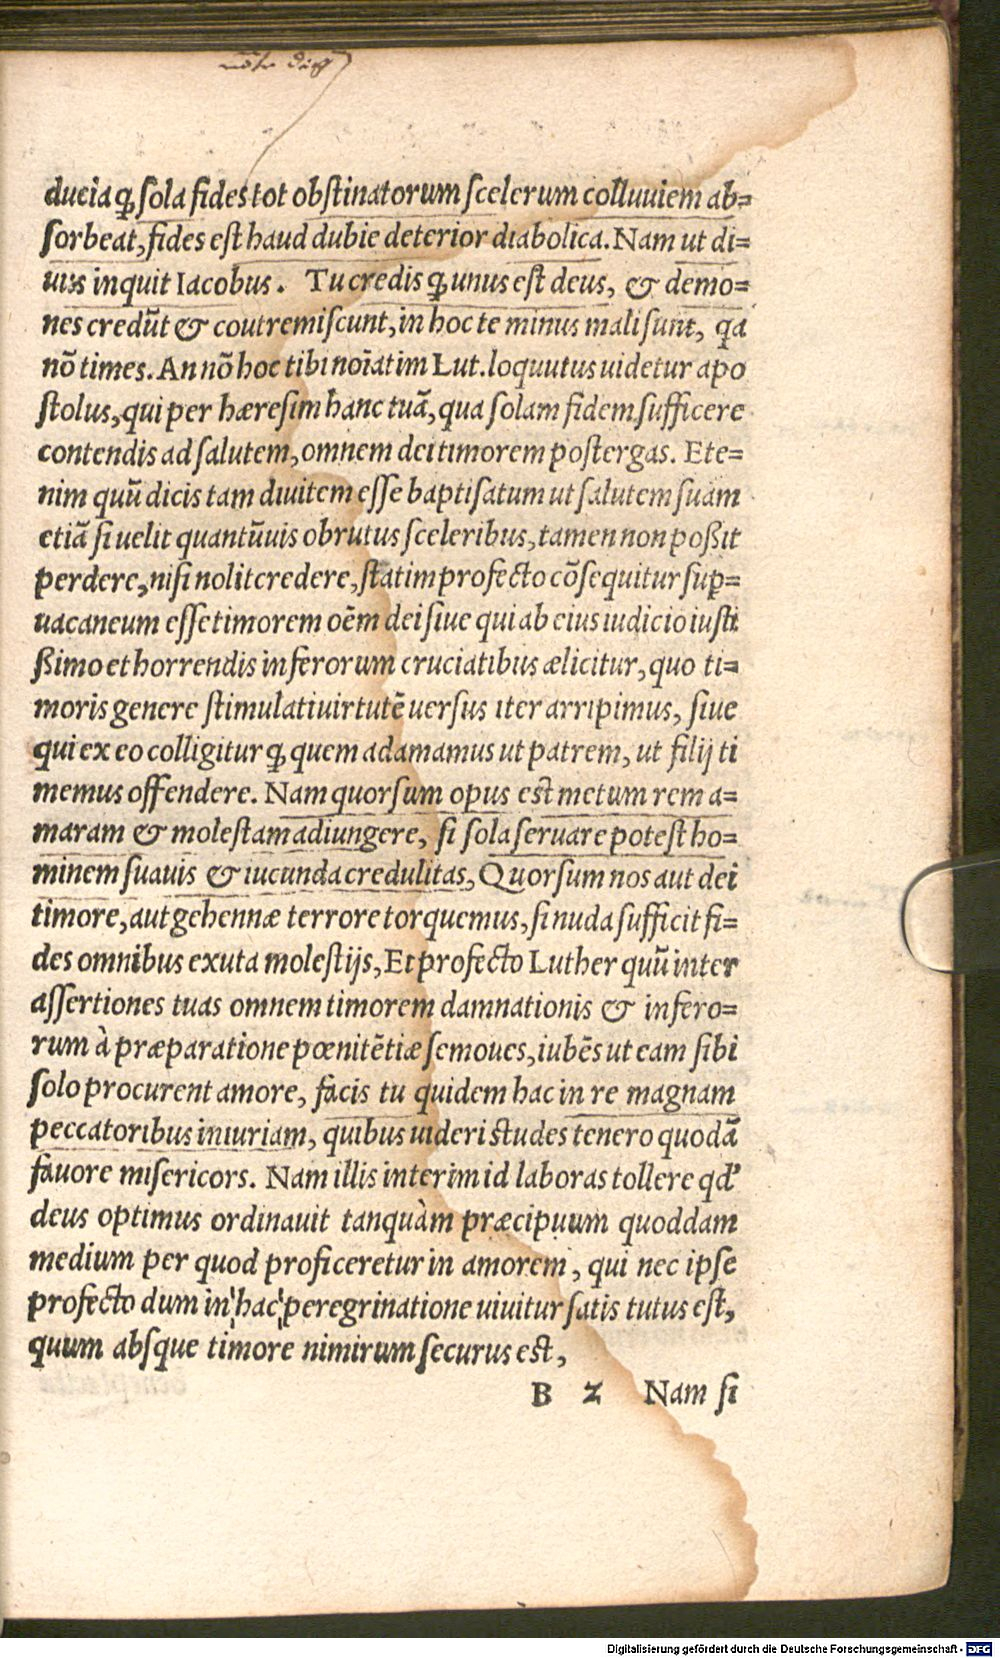 ducia ꝙ sola fides tot obstinatorum scelerum colluuiem ab=
sorbeat, fides est haud dubie deterior diabolica. Nam ut di=
uus inquit Iacobus. Tu credis ꝙ unus est deus, & demo=
nes credūt & coutremiscunt, in hoc te minus mali sunt, qa
nō times. An nō hoc tibi noīatim Lut. loquutus uidetur apo
stolus, qui per hæresim hanc tuā, qua solam fidem sufficere
contendis ad salutem, omnem dei timorem postergas. Ete=
nim quū dicis tam diuitem esse baptisatum ut salutem suam
etiā si uelit quantūuis obrutus sceleribus, tamen non poßit
perdere, nisi nolit credere, statim profecto cōsequitur sup=
uacaneum esse timorem oēm dei siue qui ab eius iudicio iusti
ßimo et horrendis inferorum cruciatibus ælicitur, quo ti=
moris genere stimulati uirtutē uersus iter arripimus, siue
qui ex eo colligitur ꝙ quem adamamus ut patrem, ut filij ti
memus offendere. Nam quorsum opus est metum rem a=
maram & molestam adiungere, si sola seruare potest ho=
minem suauis & iucunda credulitas, Quorsum nos aut dei
timore, aut gehennæ terrore torquemus, si nuda sufficit fi=
des omnibus exuta molestijs, Et profecto Luther quū inter
assertiones tuas omnem timorem damnationis & infero=
rum à præparatione pœnitētiæ semoues, iubēs ut eam sibi
solo procurent amore, facis tu quidem hac in re magnam
peccatoribus iniuriam, quibus uideri studes tenero quodā
fauore misericors. Nam illis interim id laboras tollere qd'
deus optimus ordinauit tanquàm præcipuum quoddam
medium per quod proficeretur in amorem, qui nec ipse
profecto dum in hac peregrinatione uiuitur satis tutus est,
quum absque timore nimirum securus est,
B 2 Nam si
Digitalisierung gefördert durch die Deutsche Forschungsgemeinschaft - DFG